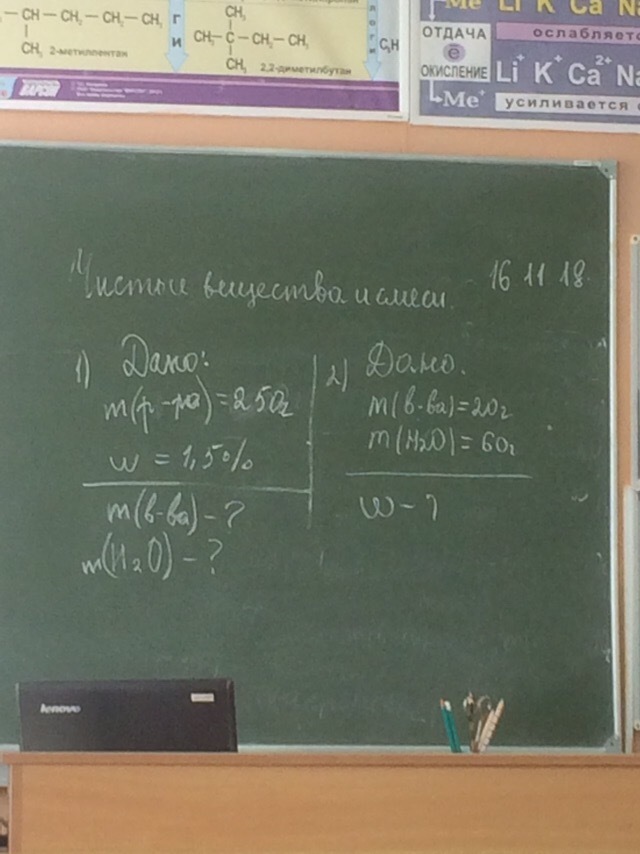 CH — CH₂ — CH₂ — CH₃
CH₃ 2-метилпентан
Г
И
CH₃
CH₃—C—CH₂—CH₃
CH₃
2,2-диметилбутан
логи
C₆H
ВАРСОН
Me Li K Ca Na
ОТДАЧА
e
ОКИСЛЕНИЕ
ослабляетс
Li⁺ K⁺ Ca²⁺ Na
Me⁺
усиливается
Чистые вещества и смеси. 16 11 18.
1) Дано:
m(р-ра)=250г
w = 1,5%
m(в-ва) - ?
m(H₂O) - ?
2) Дано.
m(в-ва)=20г
m(H₂O)=60г
w - ?
lenovo